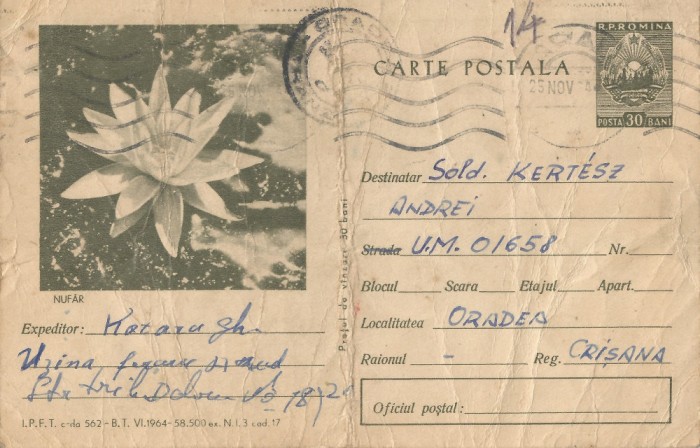 14
R.P. ROMINA
CARTE POSTALA
25 NOV
POSTA 30 BANI
Destinatar Sold. KERTÉSZ
ANDREI
Strada U.M. 01658 Nr.
Blocul Scara Etajul Apart.
Localitatea ORADEA
Raionul - Reg. CRIȘANA
Oficiul poștal:
Prețul de vînzare 30 bani
NUFĂR
Expeditor: Gh.
Uzina
I.P.F.T. c-da 562 - B.T. VI.1964 - 58.500 ex. N.I. 3 cad. 17